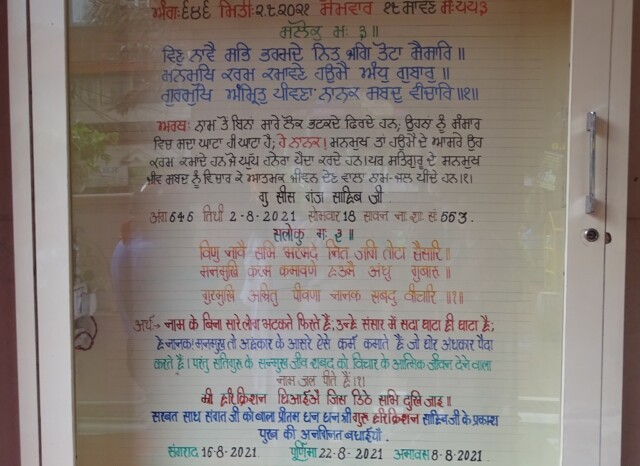 ਅੰਗ:੬੪੬ ਮਿਤੀ:੨.੮.੨੦੨੧ ਸੋਮਵਾਰ ੧੮ ਸਾਵਣ ਸ:੫੫੩
ਸਲੋਕੁ ਮਃ ੩॥
ਵਿਣੁ ਨਾਵੈ ਸਭਿ ਭਰਮਦੇ ਨਿਤ ਜਗਿ ਤੋਟਾ ਸੈਸਾਰਿ॥
ਮਨਮੁਖਿ ਕਰਮ ਕਮਾਵਣੇ ਹਉਮੈ ਅੰਧੁ ਗੁਬਾਰੁ॥
ਗੁਰਮੁਖਿ ਅੰਮ੍ਰਿਤੁ ਪੀਵਣਾ ਨਾਨਕ ਸਬਦੁ ਵੀਚਾਰਿ॥੧॥
ਅਰਥ: ਨਾਮ ਤੋਂ ਬਿਨਾ ਸਾਰੇ ਲੋਕ ਭਟਕਦੇ ਫਿਰਦੇ ਹਨ; ਉਹਨਾਂ ਨੂੰ ਸੰਸਾਰ
ਵਿਚ ਸਦਾ ਘਾਟਾ ਹੀ ਘਾਟਾ ਹੈ; ਹੇ ਨਾਨਕ! ਮਨਮੁਖ ਤਾਂ ਹਉਮੈ ਦੇ ਆਸਰੇ ਉਹ
ਕਰਮ ਕਮਾਂਦੇ ਹਨ ਜੋ ਘੁੱਪ ਹਨੇਰਾ ਪੈਦਾ ਕਰਦੇ ਹਨ।ਪਰ ਸਤਿਗੁਰੂ ਦੇ ਸਨਮੁਖ
ਜੀਵ ਸਬਦ ਨੂੰ ਵਿਚਾਰ ਕੇ ਆਤਮਕ ਜੀਵਨ ਦੇਣ ਵਾਲਾ ਨਾਮ-ਜਲ ਪੀਂਦੇ ਹਨ।੧।
गु सीस गंज साहिब जी.
अंग 646 तिथी 2-8-2021 सोमवार 18 सावन ना. शा. सं 553.
सलोकु मः ३॥
विणु नावै सभि भरमदे नित जगि तोटा सैसारि॥
मनमुखि करम कमावणे हउमै अंधु गुबारु॥
गुरमुखि अम्रितु पीवणा नानक सबदु वीचारि॥१॥
अर्थ:- नाम के बिना सारे लोग भटकते फिरते हैं; उन्हें संसार में सदा घाटा ही घाटा है;
हे नानक! मनमुख तो अहंकार के आसरे ऐसे कर्म कमाते हैं जो घोर अंधकार पैदा
करते हैं। परंतु सतिगुरू के सन्मुख जीव शबद को विचार के आत्मिक जीवन देने वाला
नाम जल पीते हैं।१।
स्री हरिक्रिशन धिआईऐ जिस डिठे सभि दुखि जाइ॥
सरबत साध संगत जी को बाला प्रीतम धन धन श्री गुरू हरिक्रिशन साहिब जी के प्रकाश
पुरब की अनगिनत बधाईयाँ.
संगराद 16-8-2021. पूर्णिमा 22-8-2021 अमावस 8-8-2021.